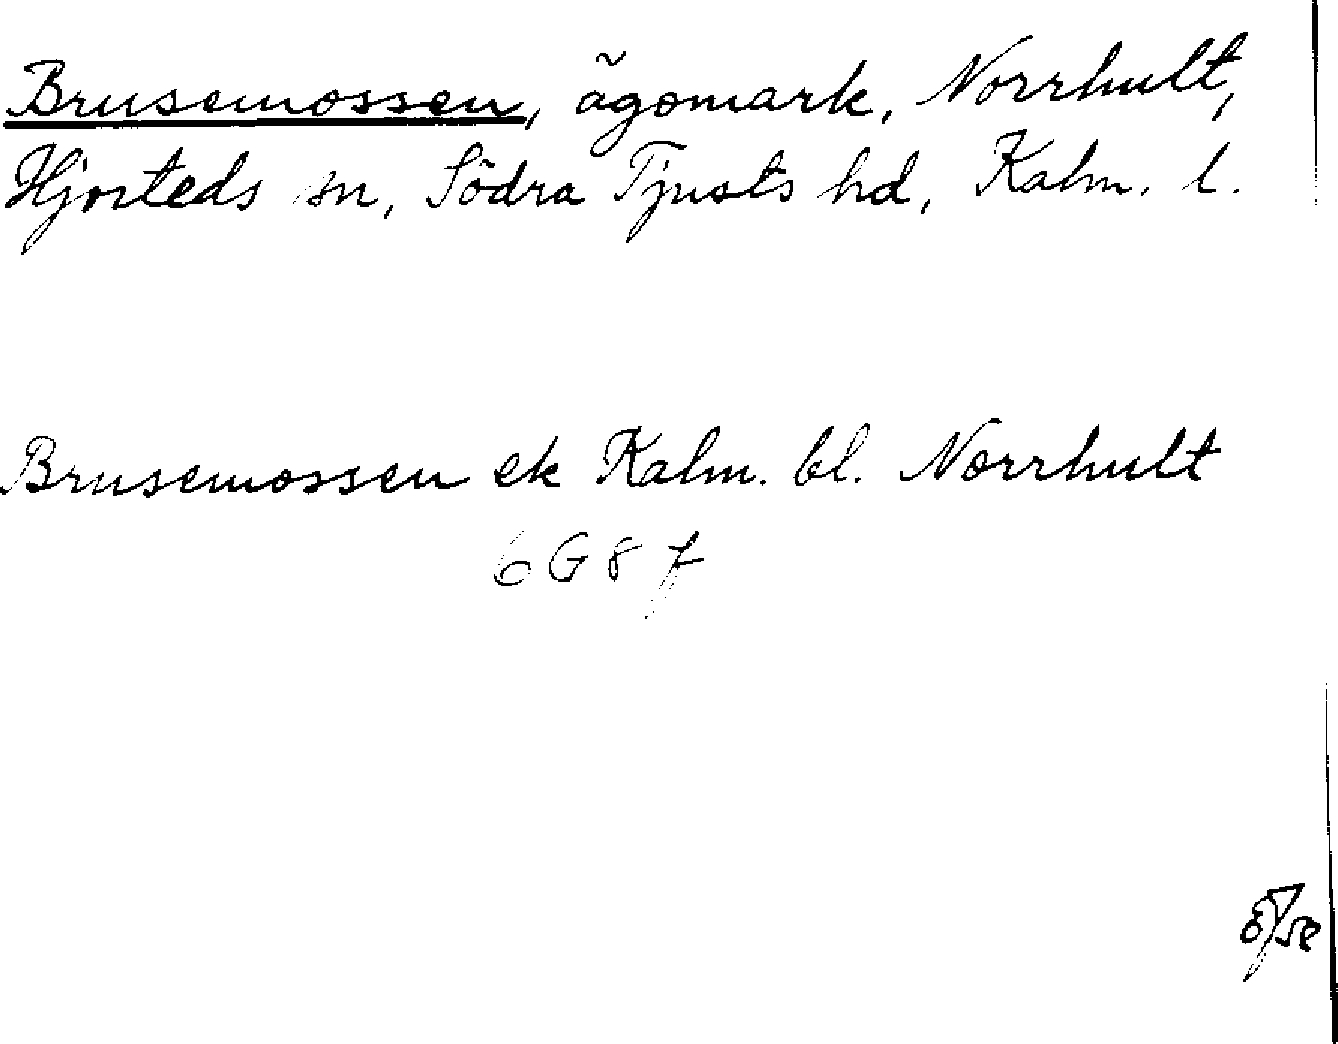 Brusemossen, ägomark, Norrhult,
Hjorteds sn, Södra Tjusts hd, Kalm. l.
Brusemossen ek Kalm. bl. Norrhult
6G8f